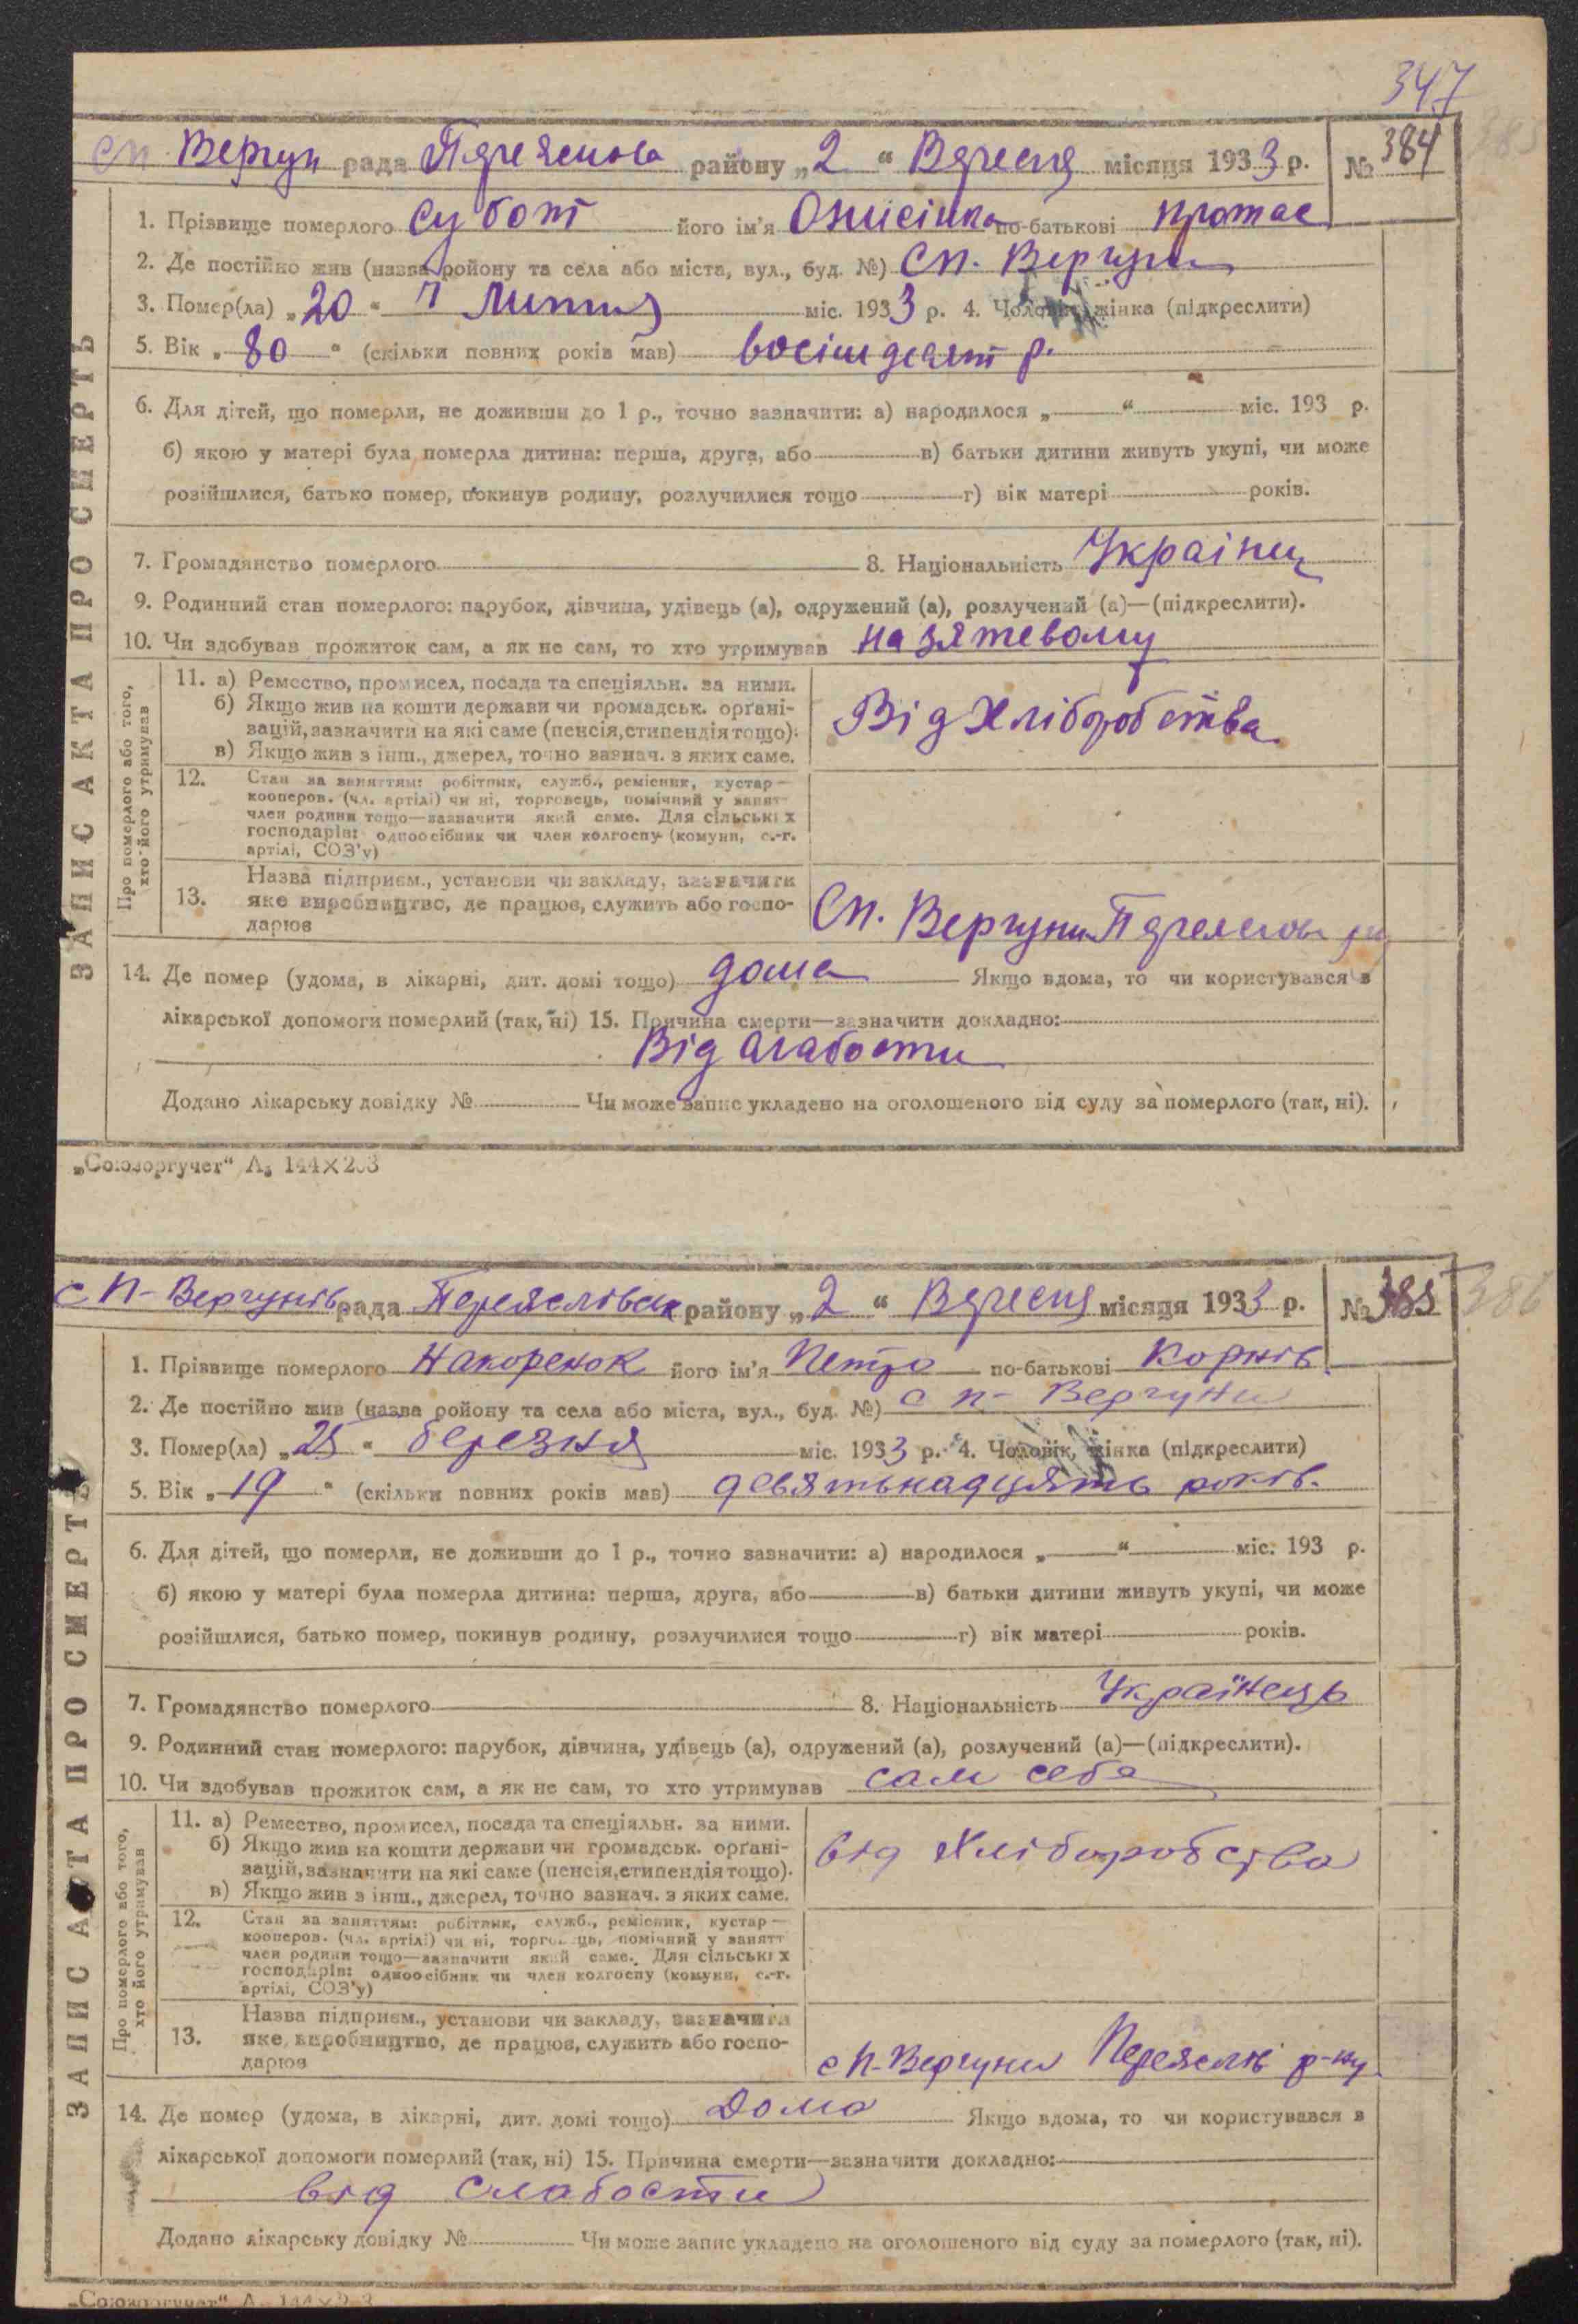 347
сп Вергун рада Переяслова району „2“ Вересня місяця 1933 р. № 384
385
1. Прізвище померлого Субот його ім'я Онисішка по-батькові протас
2. Де постійно жив (назва ройону та села або міста, вул., буд. №) сп. Вергуни
3. Помер(ла) „20“ Лютий міс. 1933 р. 4. Чоловік, жінка (підкреслити)
5. Вік „80“ (скільки повних років мав) восімдесят р.
6. Для дітей, що померли, не доживши до 1 р., точно зазначити: а) народилося „ “ міс. 193 р.
б) якою у матері була померла дитина: перша, друга, або в) батьки дитини живуть укупі, чи може
розійшлися, батько помер, покинув родину, розлучилися тощо г) вік матері років.
7. Громадянство померлого 8. Національність Українец
9. Родинний стан померлого: парубок, дівчина, удівець (а), одружений (а), розлучений (а)—(підкреслити).
10. Чи здобував прожиток сам, а як не сам, то хто утримував на зятевому
Про померлого або того, хто його утримував
11. а) Ремество, промисел, посада та спеціяльн. за ними.
б) Якщо жив на кошти держави чи громадськ. орґані-
зацій, зазначити на які саме (пенсія, стипендія тощо).
в) Якщо жив з інш., джерел, точно зазнач. з яких саме.
Від Хліборобства
12. Стан за заняттям: робітник, служб., ремісник, кустар—
кооперов. (чл. артілі) чи ні, торговець, помічний у занят
член родини тощо—зазначити який саме. Для сільських
господарів: одноосібник чи член колгоспу (комуни, с.-г.
артілі, СОЗ'у)
13. Назва підприєм., установи чи закладу, зазначити
яке виробництво, де працює, служить або госпо-
дарює
Сп. Вергуни
14. Де помер (удома, в лікарні, дит. домі тощо) дома Якщо вдома, то чи користувався в
лікарської допомоги померлий (так, ні) 15. Причина смерти—зазначити докладно:
Від слабости
Додано лікарську довідку № Чи може запис укладено на оголошеного від суду за померлого (так, ні).
ЗАПИС АКТА ПРО СМЕРТЬ
„Союзоргучет“ А₅ 144×203
с П-Вергунів рада Переяслівськ району „2“ Вересня місяця 1933 р. № 385
386
1. Прізвище померлого Накоренок його ім'я Петро по-батькові Корнів
2. Де постійно жив (назва ройону та села або міста, вул., буд. №) с п- Вергуни
3. Помер(ла) „25“ березня міс. 1933 р. 4. Чоловік, жінка (підкреслити)
5. Вік „19“ (скільки повних років мав) девятьнадцять років.
6. Для дітей, що померли, не доживши до 1 р., точно зазначити: а) народилося „ “ міс. 193 р.
б) якою у матері була померла дитина: перша, друга, або в) батьки дитини живуть укупі, чи може
розійшлися, батько помер, покинув родину, розлучилися тощо г) вік матері років.
7. Громадянство померлого 8. Національність Українець
9. Родинний стан померлого: парубок, дівчина, удівець (а), одружений (а), розлучений (а)—(підкреслити).
10. Чи здобував прожиток сам, а як не сам, то хто утримував сам себе
Про померлого або того, хто його утримував
11. а) Ремество, промисел, посада та спеціяльн. за ними.
б) Якщо жив на кошти держави чи громадськ. орґані-
зацій, зазначити на які саме (пенсія, стипендія тощо).
в) Якщо жив з інш., джерел, точно зазнач. з яких саме.
від Хліборобства
12. Стан за заняттям: робітник, служб., ремісник, кустар—
кооперов. (чл. артілі) чи ні, торговець, помічний у занятт
член родини тощо—зазначити який саме. Для сільських
господарів: одноосібник чи член колгоспу (комуни, с.-г.
артілі, СОЗ'у)
13. Назва підприєм., установи чи закладу, зазначити
яке виробництво, де працює, служить або госпо-
дарює
с П-Вергуни Переяслів р-ну
14. Де помер (удома, в лікарні, дит. домі тощо) Дома Якщо вдома, то чи користувався в
лікарської допомоги померлий (так, ні) 15. Причина смерти—зазначити докладно:
від Слабости
Додано лікарську довідку № Чи може запис укладено на оголошеного від суду за померлого (так, ні).
ЗАПИС АКТА ПРО СМЕРТЬ
„Союзоргучет“ А₅ 144×203